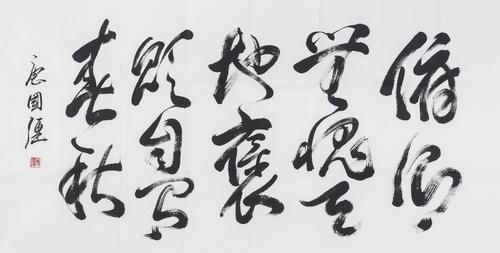 俯仰
無愧天
地褒
貶自有
春秋
唐國强